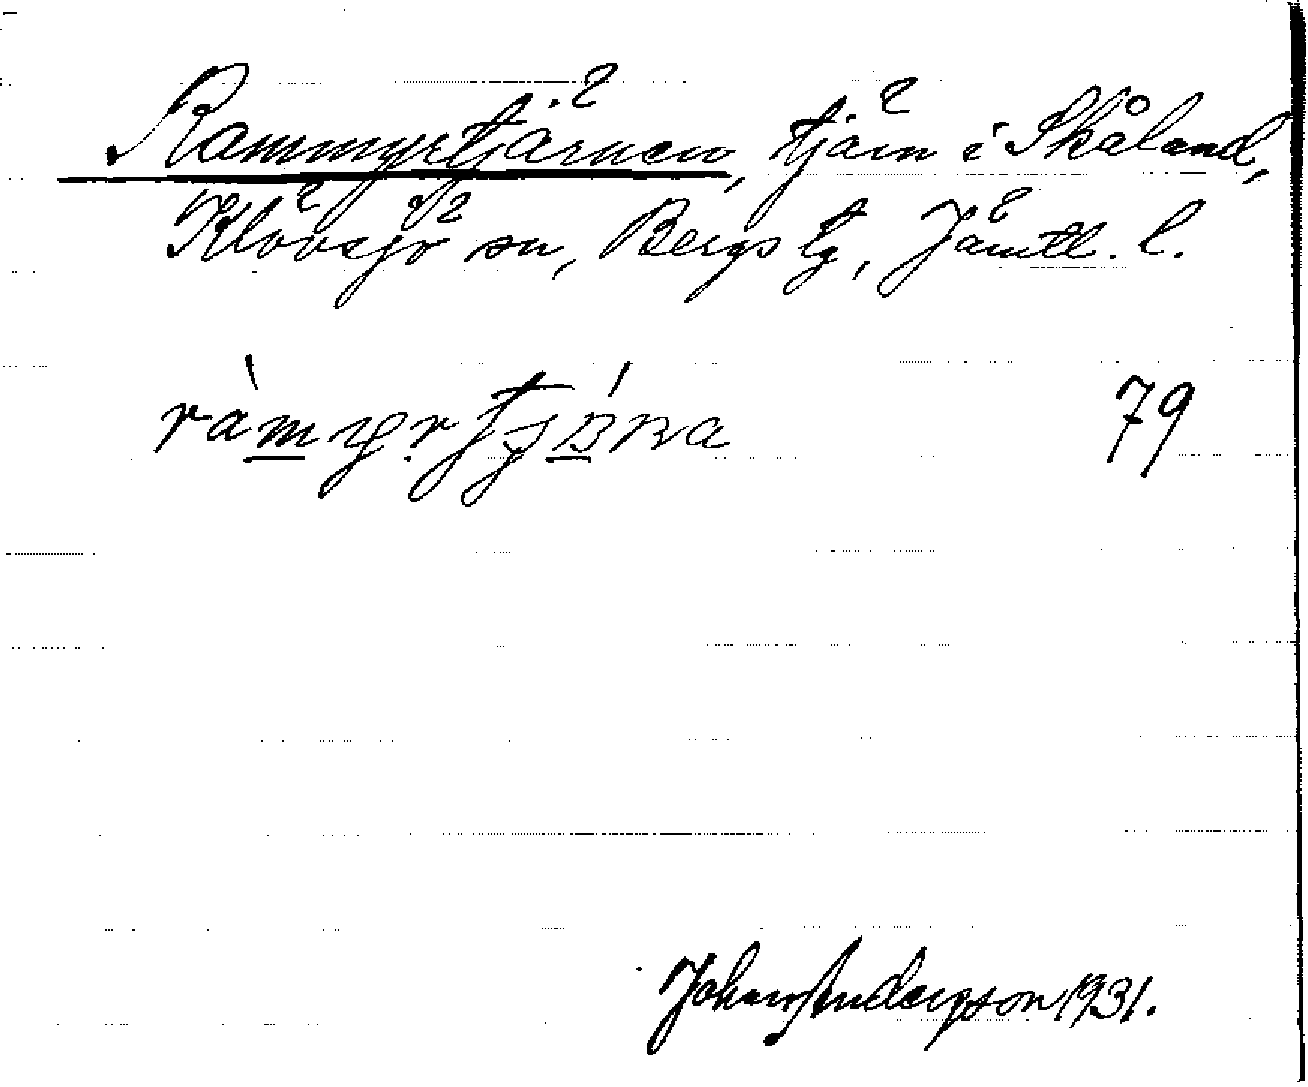 Rammyrtjärnen, tjärn i Skåland,
Klövsjö sn, Bergs tg, Jämtl. l.
79
Johan Anderson 1931.